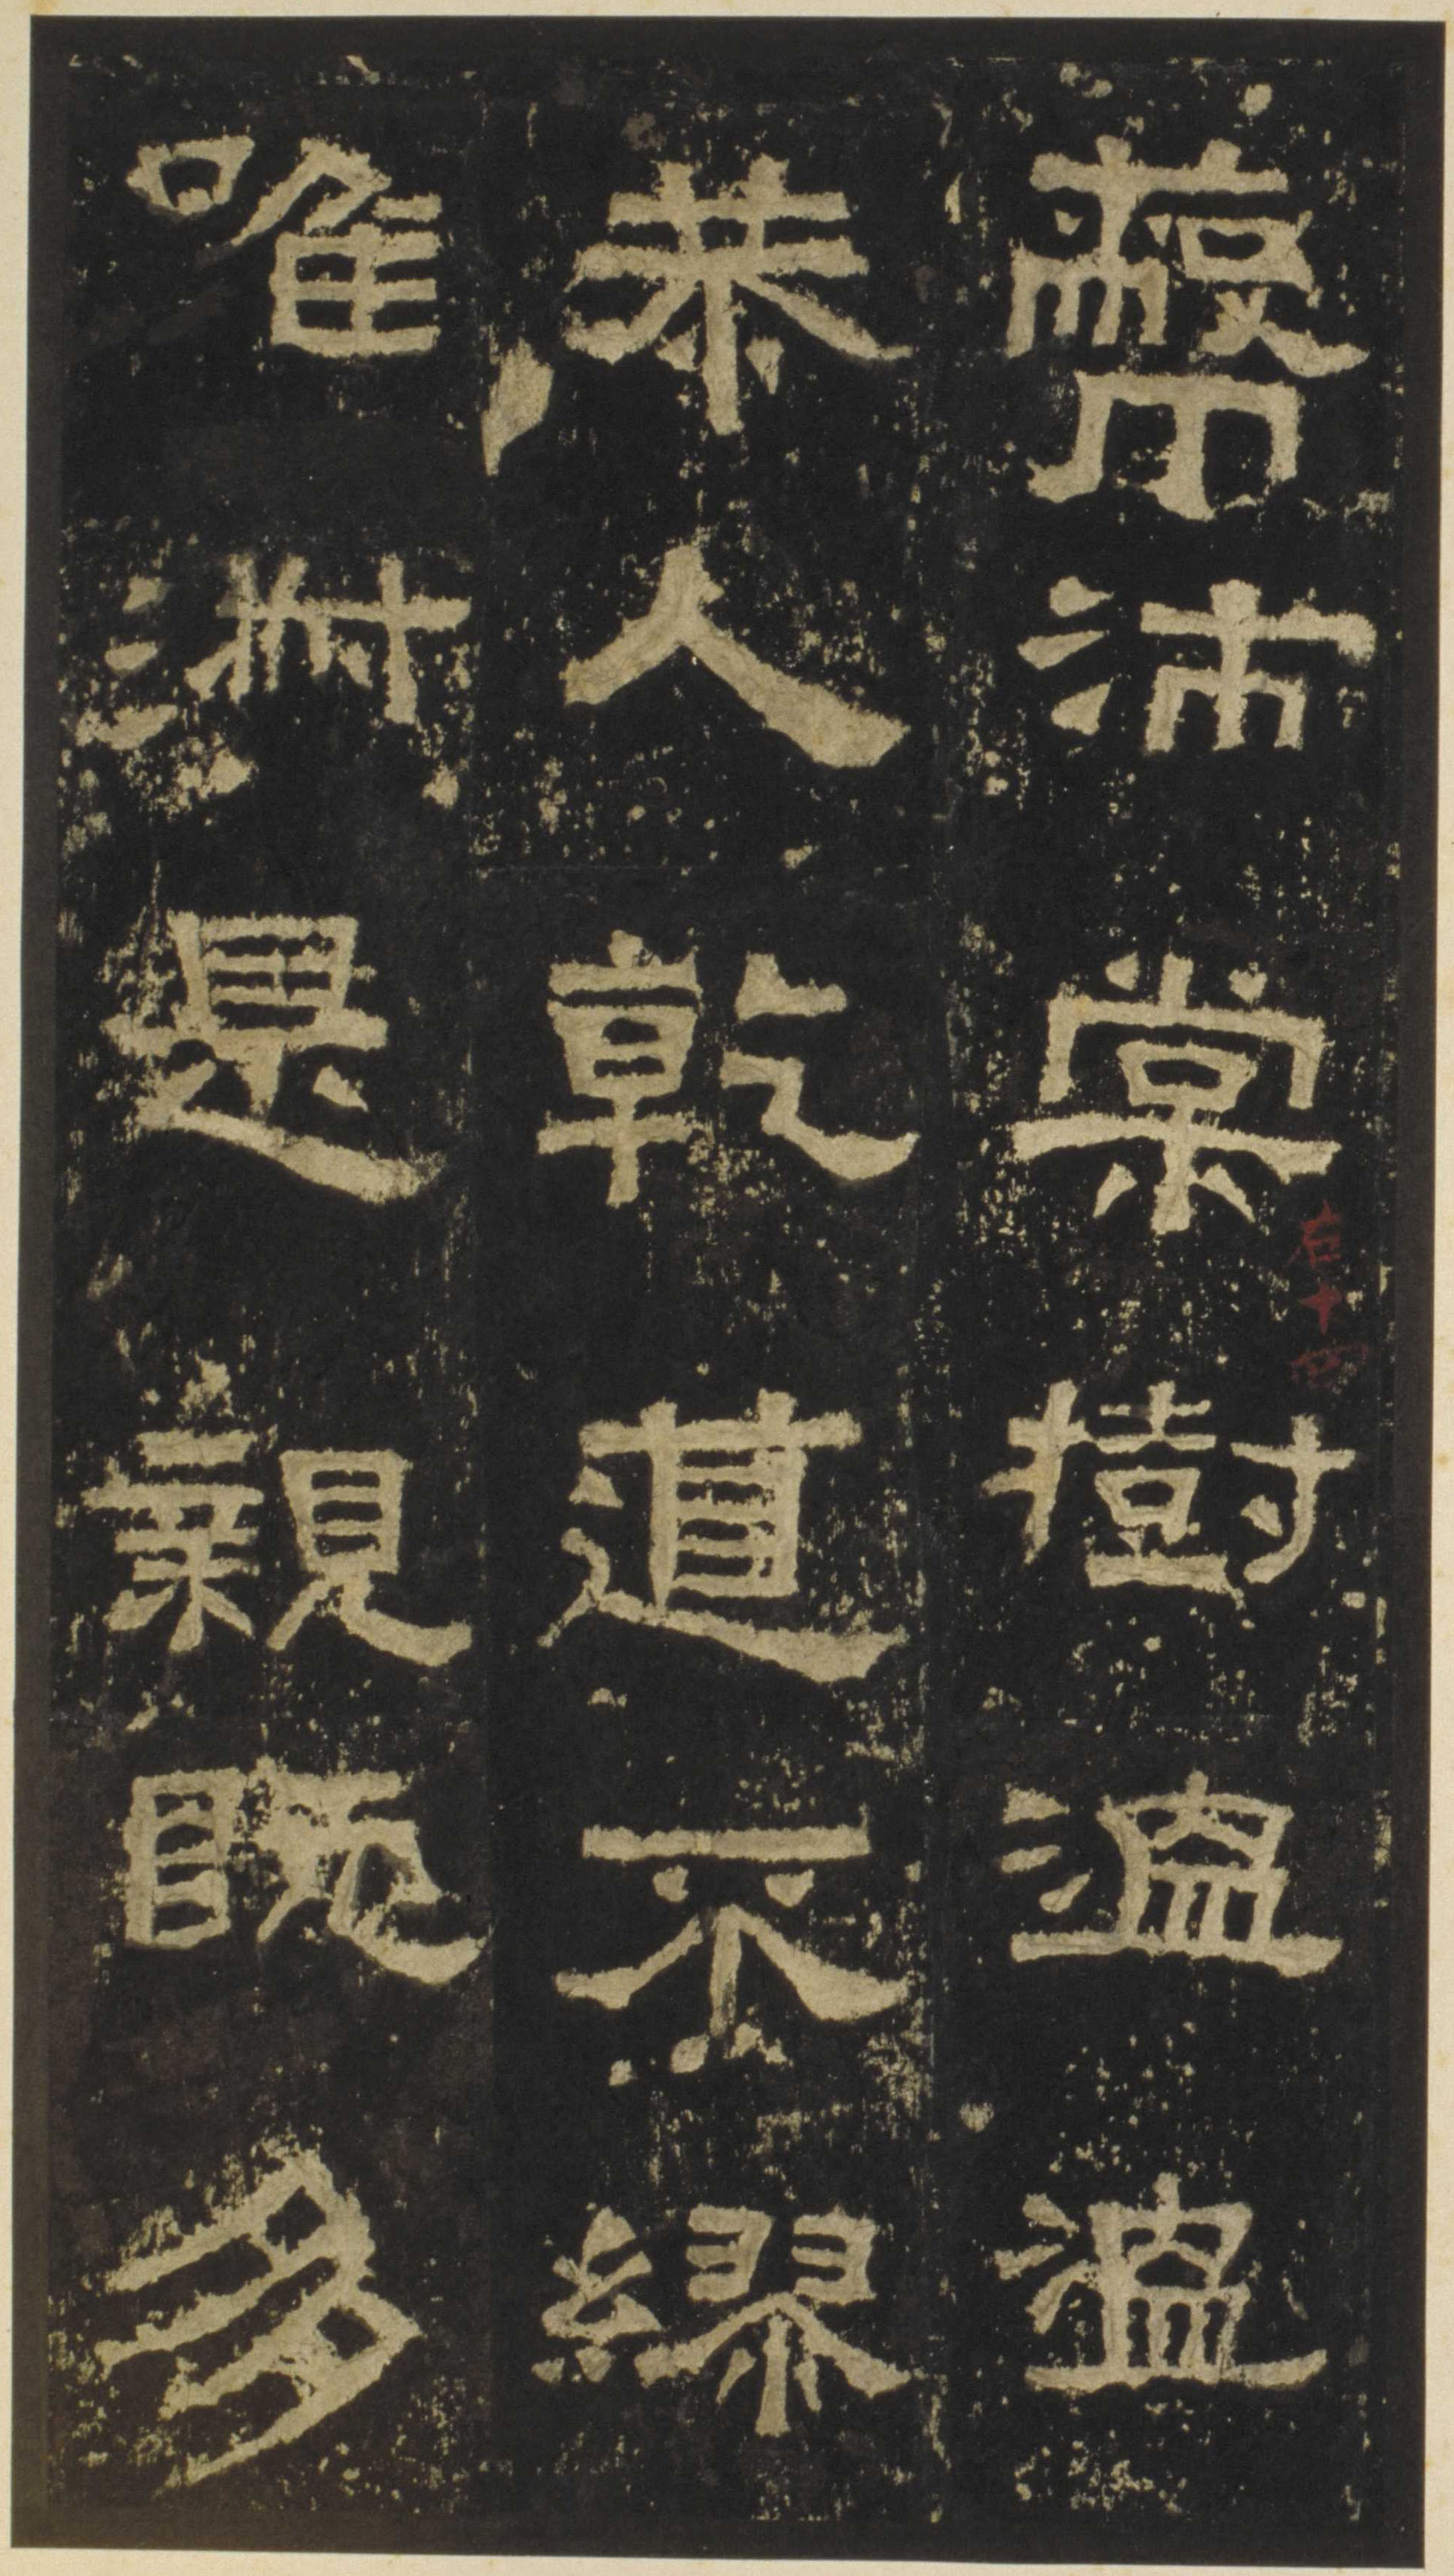 蔽沛棠樹溫溫
恭人乾道不繆
唯淑是親既多
右十四